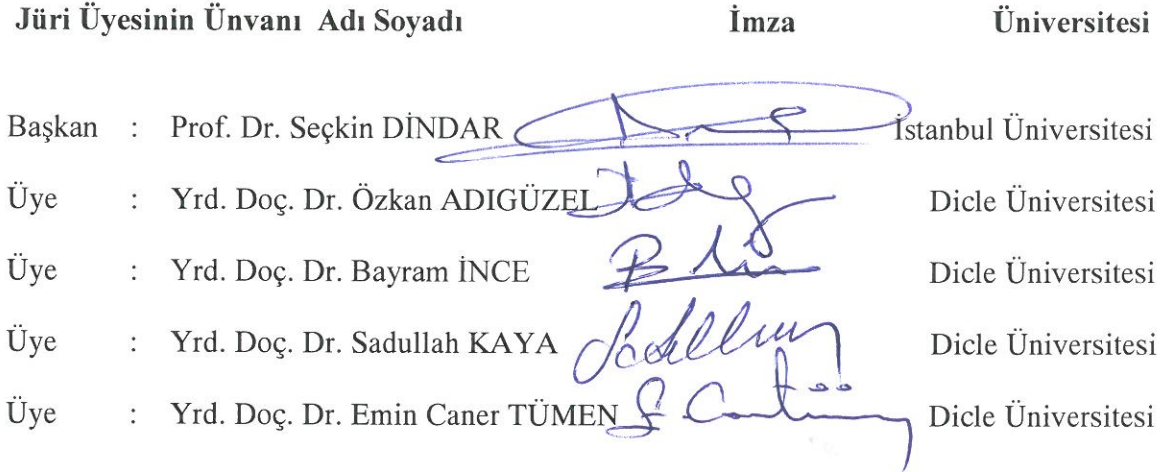 Jüri Üyesinin Ünvanı Adı Soyadı İmza Üniversitesi
Başkan : Prof. Dr. Seçkin DİNDAR İstanbul Üniversitesi
Üye : Yrd. Doç. Dr. Özkan ADIGÜZEL Dicle Üniversitesi
Üye : Yrd. Doç. Dr. Bayram İNCE Dicle Üniversitesi
Üye : Yrd. Doç. Dr. Sadullah KAYA Dicle Üniversitesi
Üye : Yrd. Doç. Dr. Emin Caner TÜMEN Dicle Üniversitesi